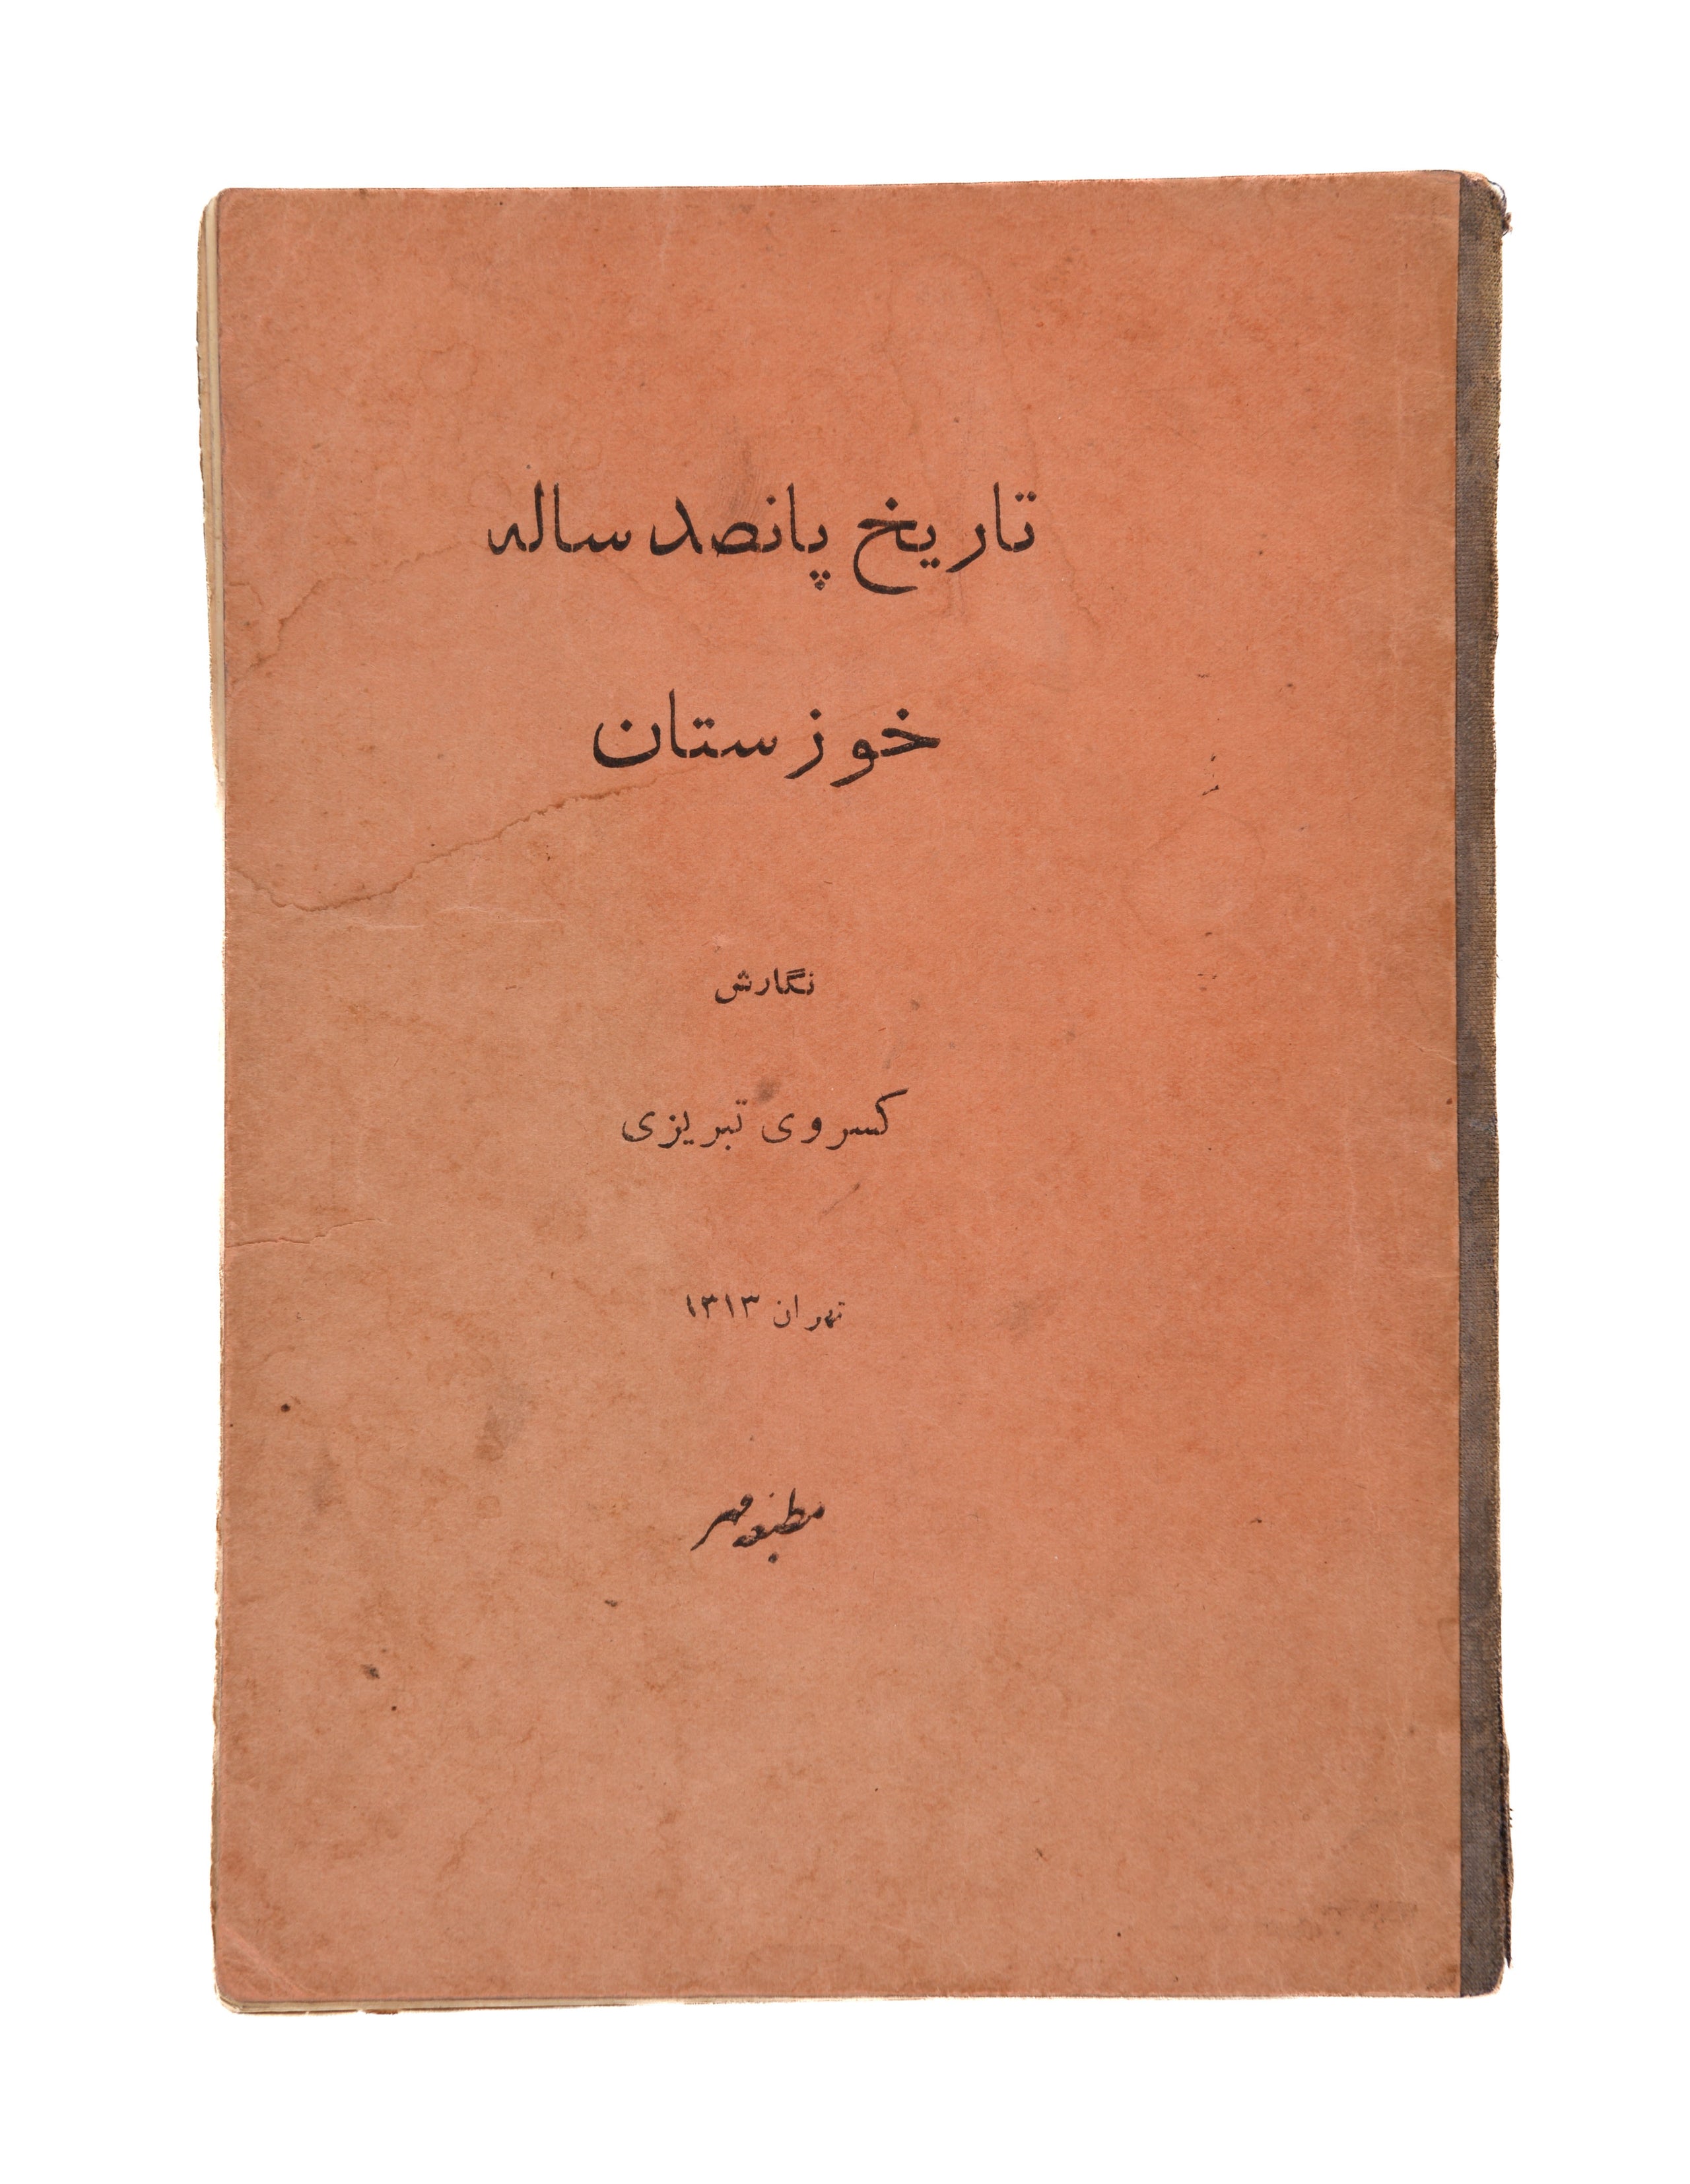 تاریخ پانصد ساله
خوزستان
نگارش
کسروی تبریزی
تهران ۱۳۱۳
مطبعه مهر